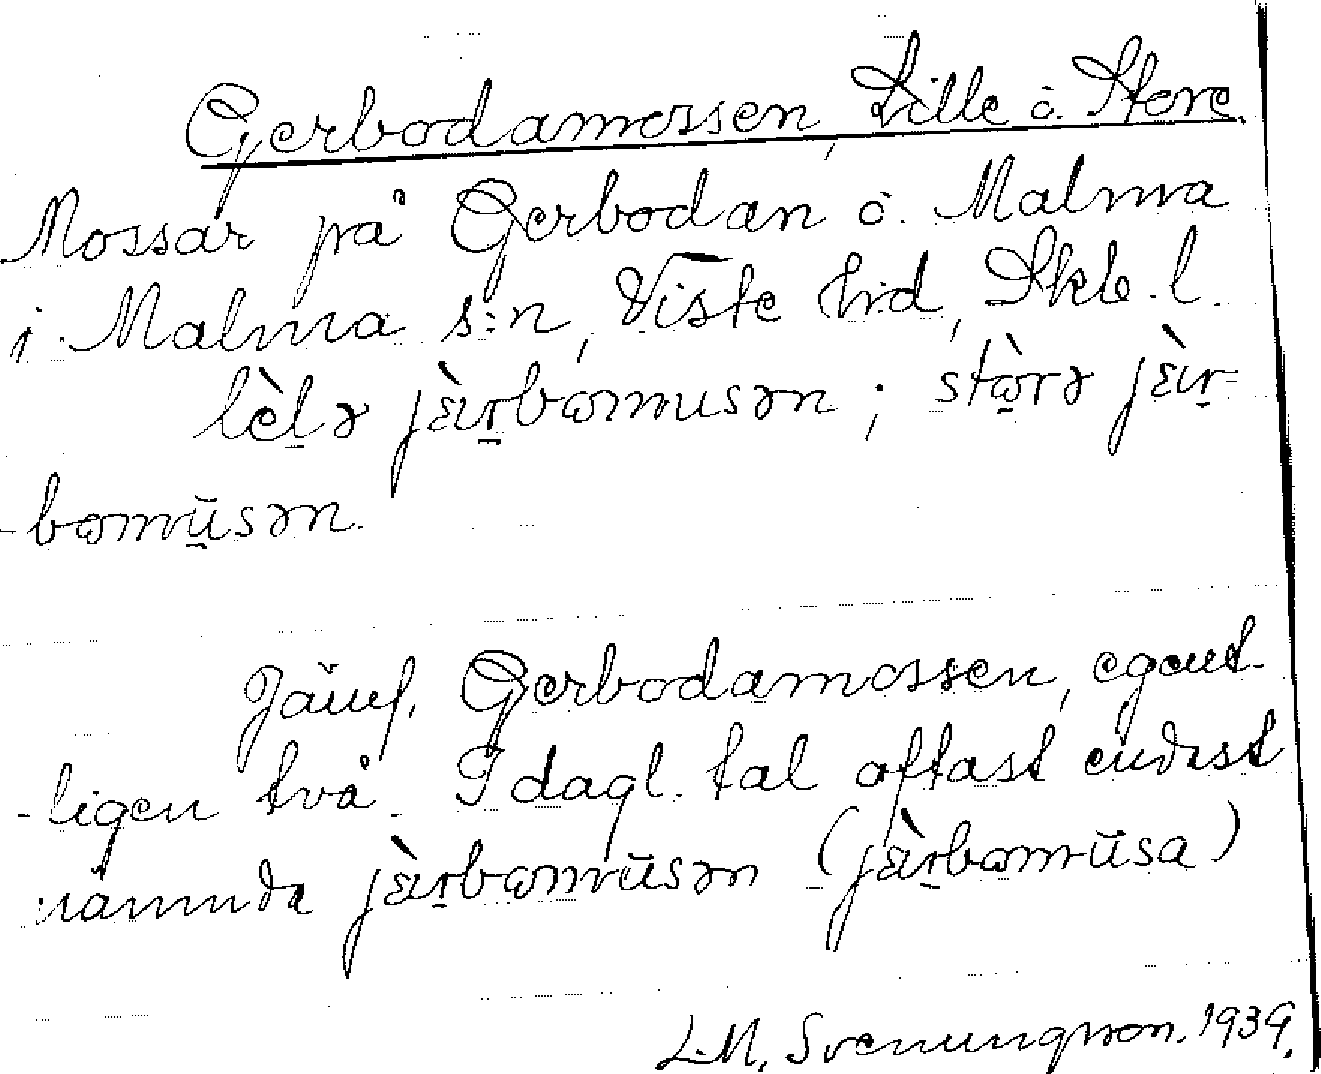 Gerbodamossen, Lille o. Store.
Mossar på Gerbodan o. Malma
i Malma s:n, Viste hd, Skb. l.
lèlə jèrbomusən ; störə jèr=
-bomusən.
Jämf. Gerbodamossen, egent-
-ligen två. I dagl. tal oftast endast
nämnda jèrbomusən (jèrbomusa)
L.M. Svenungsson. 1939.